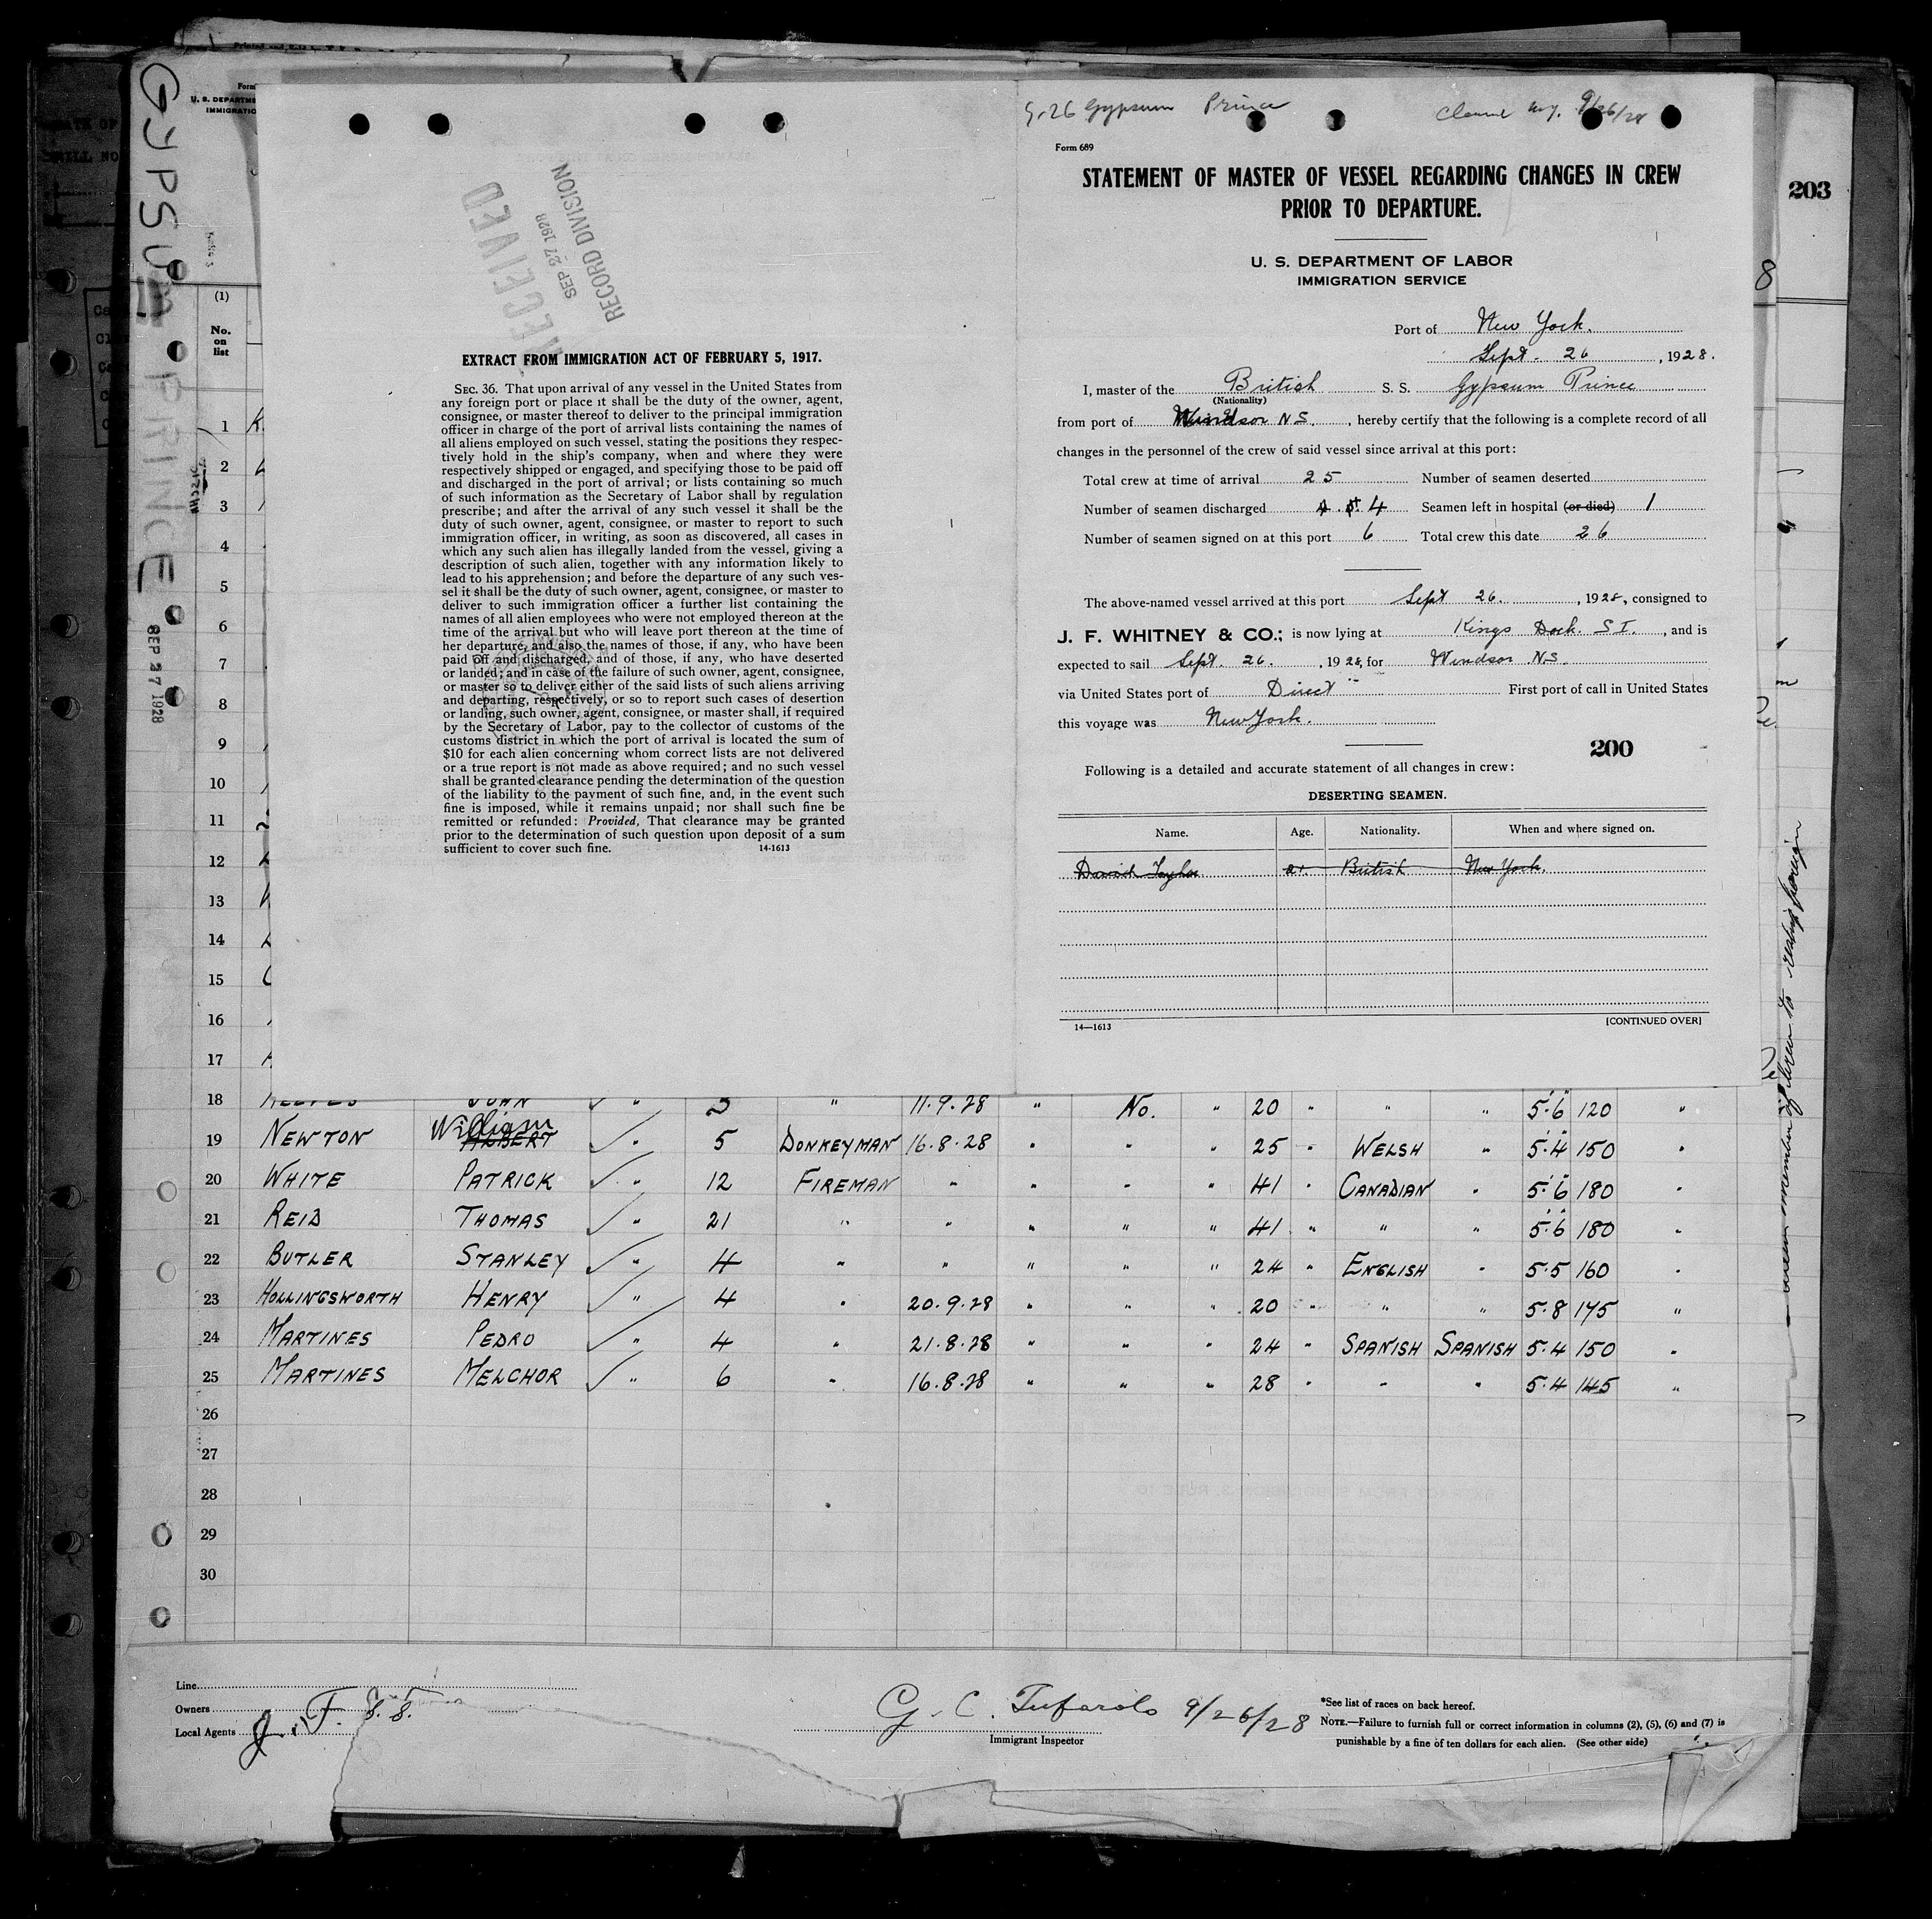 GYPSUM PRINCE
SEP 27 1928
Form
U. S. DEPARTME
IMMIGRATIO
(1)
No.
on
list
RECEIVED
SEP 27 1928
RECORD DIVISION
EXTRACT FROM IMMIGRATION ACT OF FEBRUARY 5, 1917.
SEC. 36. That upon arrival of any vessel in the United States from
any foreign port or place it shall be the duty of the owner, agent,
consignee, or master thereof to deliver to the principal immigration
officer in charge of the port of arrival lists containing the names of
all aliens employed on such vessel, stating the positions they respec-
tively hold in the ship's company, when and where they were
respectively shipped or engaged, and specifying those to be paid off
and discharged in the port of arrival; or lists containing so much
of such information as the Secretary of Labor shall by regulation
prescribe; and after the arrival of any such vessel it shall be the
duty of such owner, agent, consignee, or master to report to such
immigration officer, in writing, as soon as discovered, all cases in
which any such alien has illegally landed from the vessel, giving a
description of such alien, together with any information likely to
lead to his apprehension; and before the departure of any such ves-
sel it shall be the duty of such owner, agent, consignee, or master to
deliver to such immigration officer a further list containing the
names of all alien employees who were not employed thereon at the
time of the arrival but who will leave port thereon at the time of
her departure, and also the names of those, if any, who have been
paid off and discharged, and of those, if any, who have deserted
or landed; and in case of the failure of such owner, agent, consignee,
or master so to deliver either of the said lists of such aliens arriving
and departing, respectively, or so to report such cases of desertion
or landing, such owner, agent, consignee, or master shall, if required
by the Secretary of Labor, pay to the collector of customs of the
customs district in which the port of arrival is located the sum of
$10 for each alien concerning whom correct lists are not delivered
or a true report is not made as above required; and no such vessel
shall be granted clearance pending the determination of the question
of the liability to the payment of such fine, and, in the event such
fine is imposed, while it remains unpaid; nor shall such fine be
remitted or refunded: Provided, That clearance may be granted
prior to the determination of such question upon deposit of a sum
sufficient to cover such fine. 14-1613
9-26 Gypsum Prince 9/26/28
Form 689
STATEMENT OF MASTER OF VESSEL REGARDING CHANGES IN CREW
PRIOR TO DEPARTURE.
U. S. DEPARTMENT OF LABOR
IMMIGRATION SERVICE
Port of New York.
Sept. 26, 1928.
I, master of the British S. S. Gypsum Prince
(Nationality)
from port of Windsor N.S., hereby certify that the following is a complete record of all
changes in the personnel of the crew of said vessel since arrival at this port:
Total crew at time of arrival 25 Number of seamen deserted
Number of seamen discharged 4 Seamen left in hospital (or died) 1
Number of seamen signed on at this port 6 Total crew this date 26
The above-named vessel arrived at this port Sept 26., 1928, consigned to
J. F. WHITNEY & CO.; is now lying at Kings Dock. S I., and is
expected to sail Sept. 26., 1928, for Windsor N.S.
via United States port of Direct First port of call in United States
this voyage was New York.
200
Following is a detailed and accurate statement of all changes in crew:
DESERTING SEAMEN.
Name. Age. Nationality. When and where signed on.
David Taylor 21. British New York.
14—1613 [CONTINUED OVER]
203
1
2
3
4
5
6
7
8
9
10
11
12
13
14
15
16
17
18 JOHN ✓ " " 11.9.28 " No. " 20 " " " 5.6 120 "
19 NEWTON William ALBERT ✓ " 5 DONKEYMAN 16.8.28 " " " 25 " WELSH " 5.4 150 "
20 WHITE PATRICK ✓ " 12 FIREMAN " " " " 41 " CANADIAN " 5.6 180 "
21 REID THOMAS ✓ " 21 " " " " " 41 " " " 5.6 180 "
22 BUTLER STANLEY ✓ " 4 " " " " " 24 " ENGLISH " 5.5 160 "
23 HOLLINGSWORTH HENRY ✓ " 4 " 20.9.28 " " " 20 " " " 5.8 175 "
24 MARTINES PEDRO ✓ " 4 " 21.8.28 " " " 24 " SPANISH SPANISH 5.4 150 "
25 MARTINES MELCHOR ✓ " 6 " 16.8.28 " " " 28 " " " 5.4 145 "
26
27
28
29
30
Line
Owners
Local Agents J. F.
G. C. Tufarolo 9/26/28
Immigrant Inspector
*See list of races on back hereof.
NOTE.—Failure to furnish full or correct information in columns (2), (5), (6) and (7) is
punishable by a fine of ten dollars for each alien. (See other side)